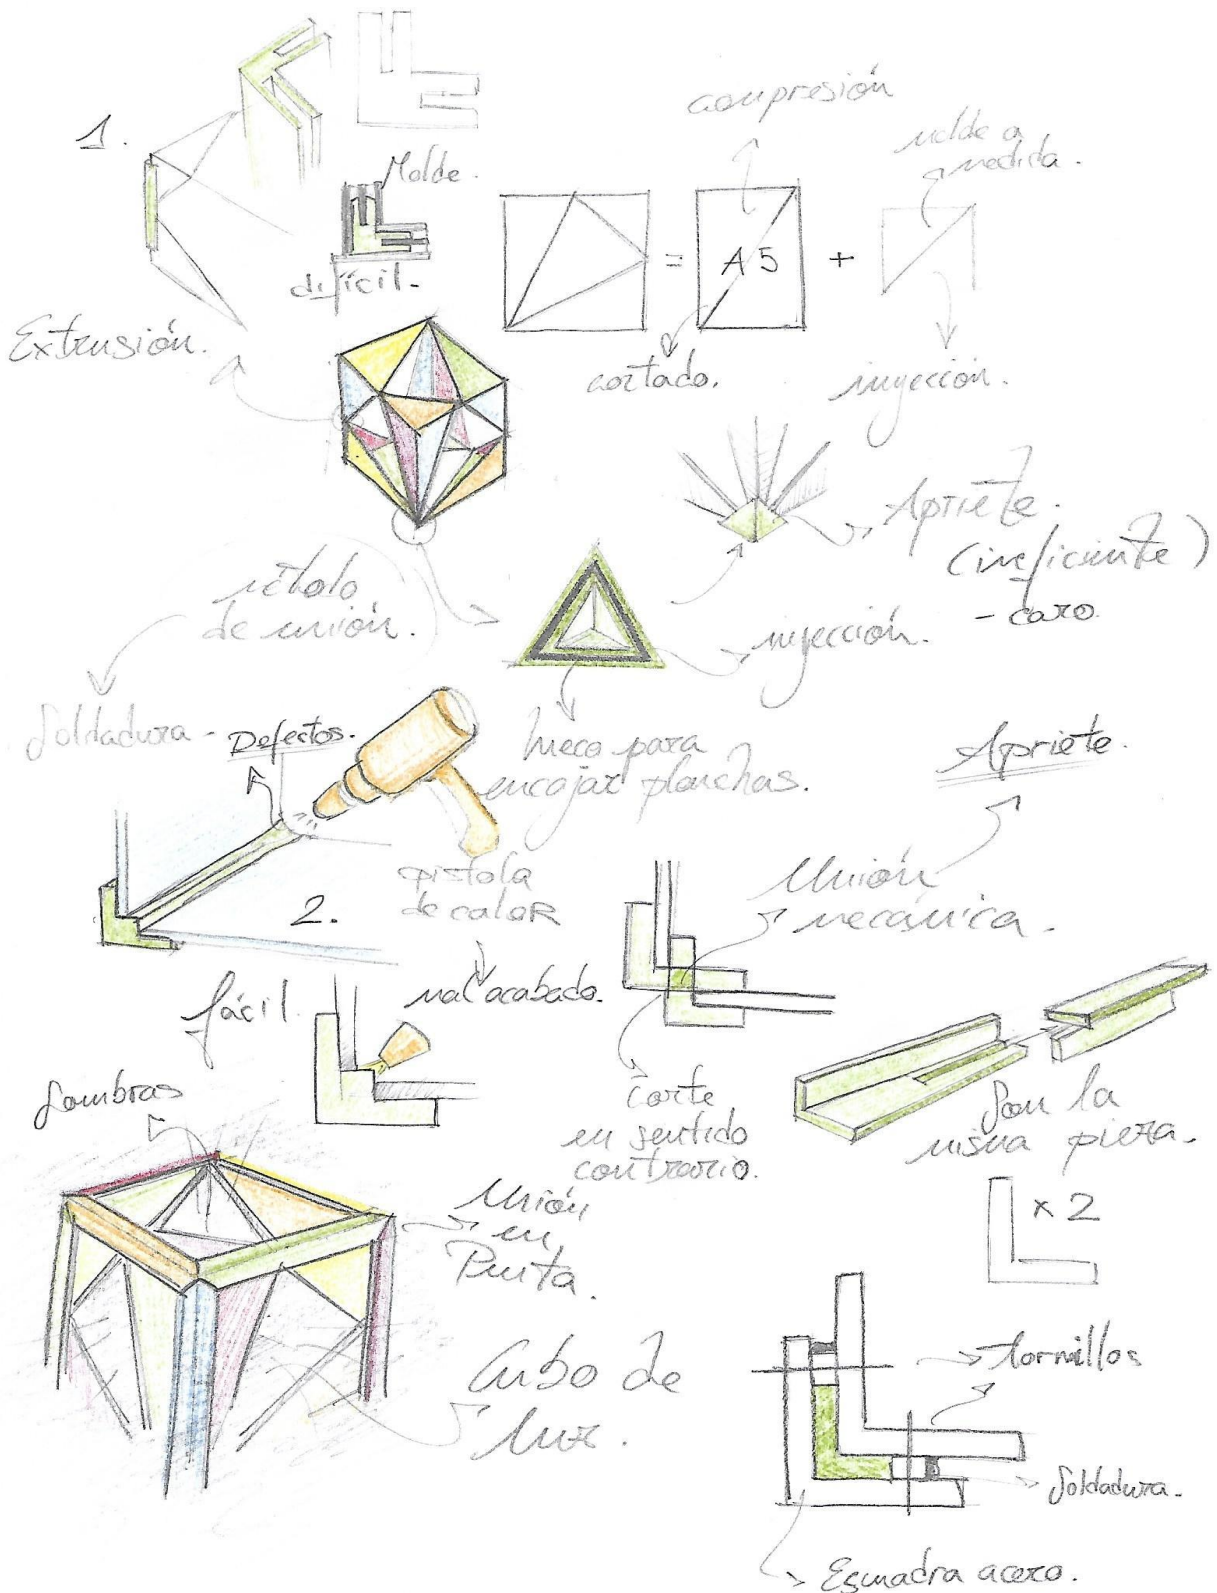 1.
Molde.
difícil.
Extrusión.
compresión
molde a
medida.
=
A5
+
cortado.
inyección.
Apriete.
(ineficiente)
- caro
método
de unión.
inyección.
Soldadura -
Defectos.
hueco para
encajar planchas.
Apriete.
pistola
de calor
2.
mal acabado.
Unión
mecánica.
fácil.
corte
en sentido
contrario.
Son la
misma pieza.
x 2
Sombras
Unión
en
Punta.
Cubo de
luz.
tornillos
Soldadura.
Escuadra acero.